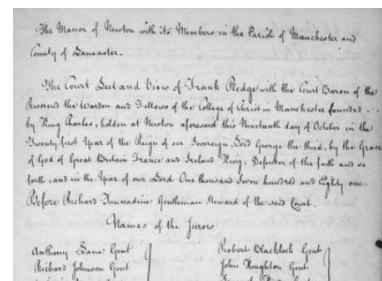 The Manor of Newton with its Members in the Parish of Manchester and
County of Lancaster.
The Court Leet and View of Frank Pledge with the Court Baron of the
Reverend the Warden and Fellows of the College of Christ in Manchester founded
by King Charles, holden at Newton aforesaid this Nineteenth day of October in the
Twenty first Year of the Reign of our Sovereign Lord George the third, by the Grace
of God of Great Britain France and Ireland King, Defender of the faith and so
forth, and in the Year of our Lord One thousand Seven hundred and Eighty one.
Before Richard Gentleman Steward of the said Court.
Names of the Jurors
Anthony Lane Gent
Richard Johnson Gent
Robert Blacklock Gent
John Houghton Gent